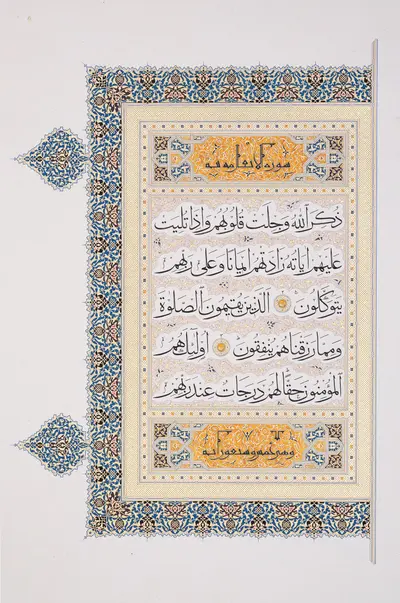 سورة الانفال مدنية
ذُكِرَ اللّٰهُ وَجِلَتْ قُلُوبُهُمْ وَاِذَا تُلِيَتْ
عَلَيْهِمْ اٰيَاتُهُ زَادَتْهُمْ اِيمَانًا وَعَلٰى رَبِّهِمْ
يَتَوَكَّلُونَ الَّذِينَ يُقِيمُونَ الصَّلٰوةَ
وَمِمَّا رَزَقْنَاهُمْ يُنْفِقُونَ اُولٰئِكَ هُمُ
الْمُؤْمِنُونَ حَقًّا لَهُمْ دَرَجَاتٌ عِنْدَ رَبِّهِمْ
وهي خمس وسبعون آية